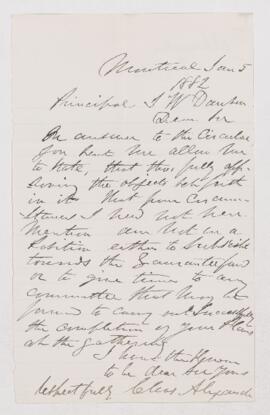 Montreal Jan 5
1882
Principal J W Dawson
Dear Sir
In answer to the Circular
you sent me allow me
to state, that tho fully app-
roving the objects set forth
in it that from circum-
stances I need not here
mention am not in a
position either to subscribe
towards the Guarantee fund
or to give time to any
committee that may be
formed to carry out successfully
the completion of your plans
at the gathering
I have the Honour
to be dear Sir yours
respectfully Chas Alexander